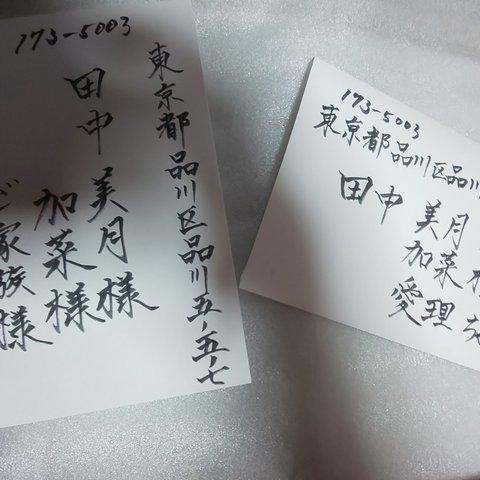 173-5003
東京都品川区品川五-五-七
田中 美月様
加菜様
ご家族様
173-5003
東京都品川区品川
田中 美月
加菜様
愛理ち